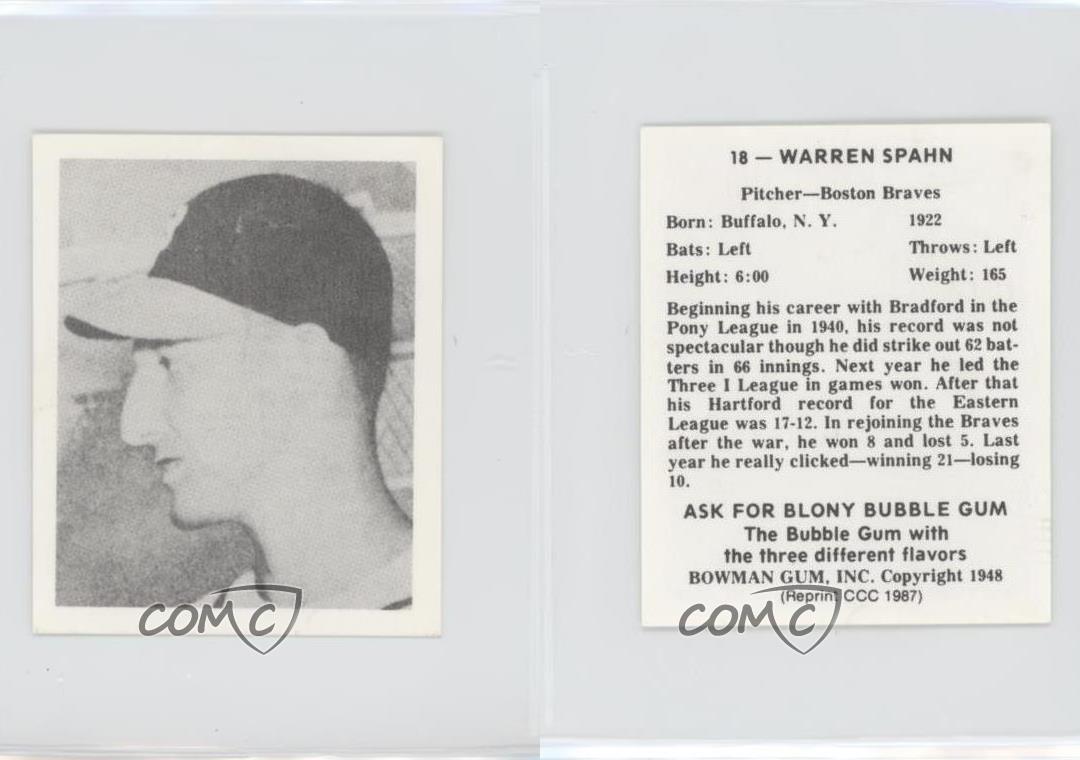 18 — WARREN SPAHN
Pitcher—Boston Braves
Born: Buffalo, N. Y. 1922
Bats: Left Throws: Left
Height: 6:00 Weight: 165
Beginning his career with Bradford in the
Pony League in 1940, his record was not
spectacular though he did strike out 62 bat-
ters in 66 innings. Next year he led the
Three I League in games won. After that
his Hartford record for the Eastern
League was 17-12. In rejoining the Braves
after the war, he won 8 and lost 5. Last
year he really clicked—winning 21—losing
10.
ASK FOR BLONY BUBBLE GUM
The Bubble Gum with
the three different flavors
BOWMAN GUM, INC. Copyright 1948
(Reprint CCC 1987)
COMC
COMC